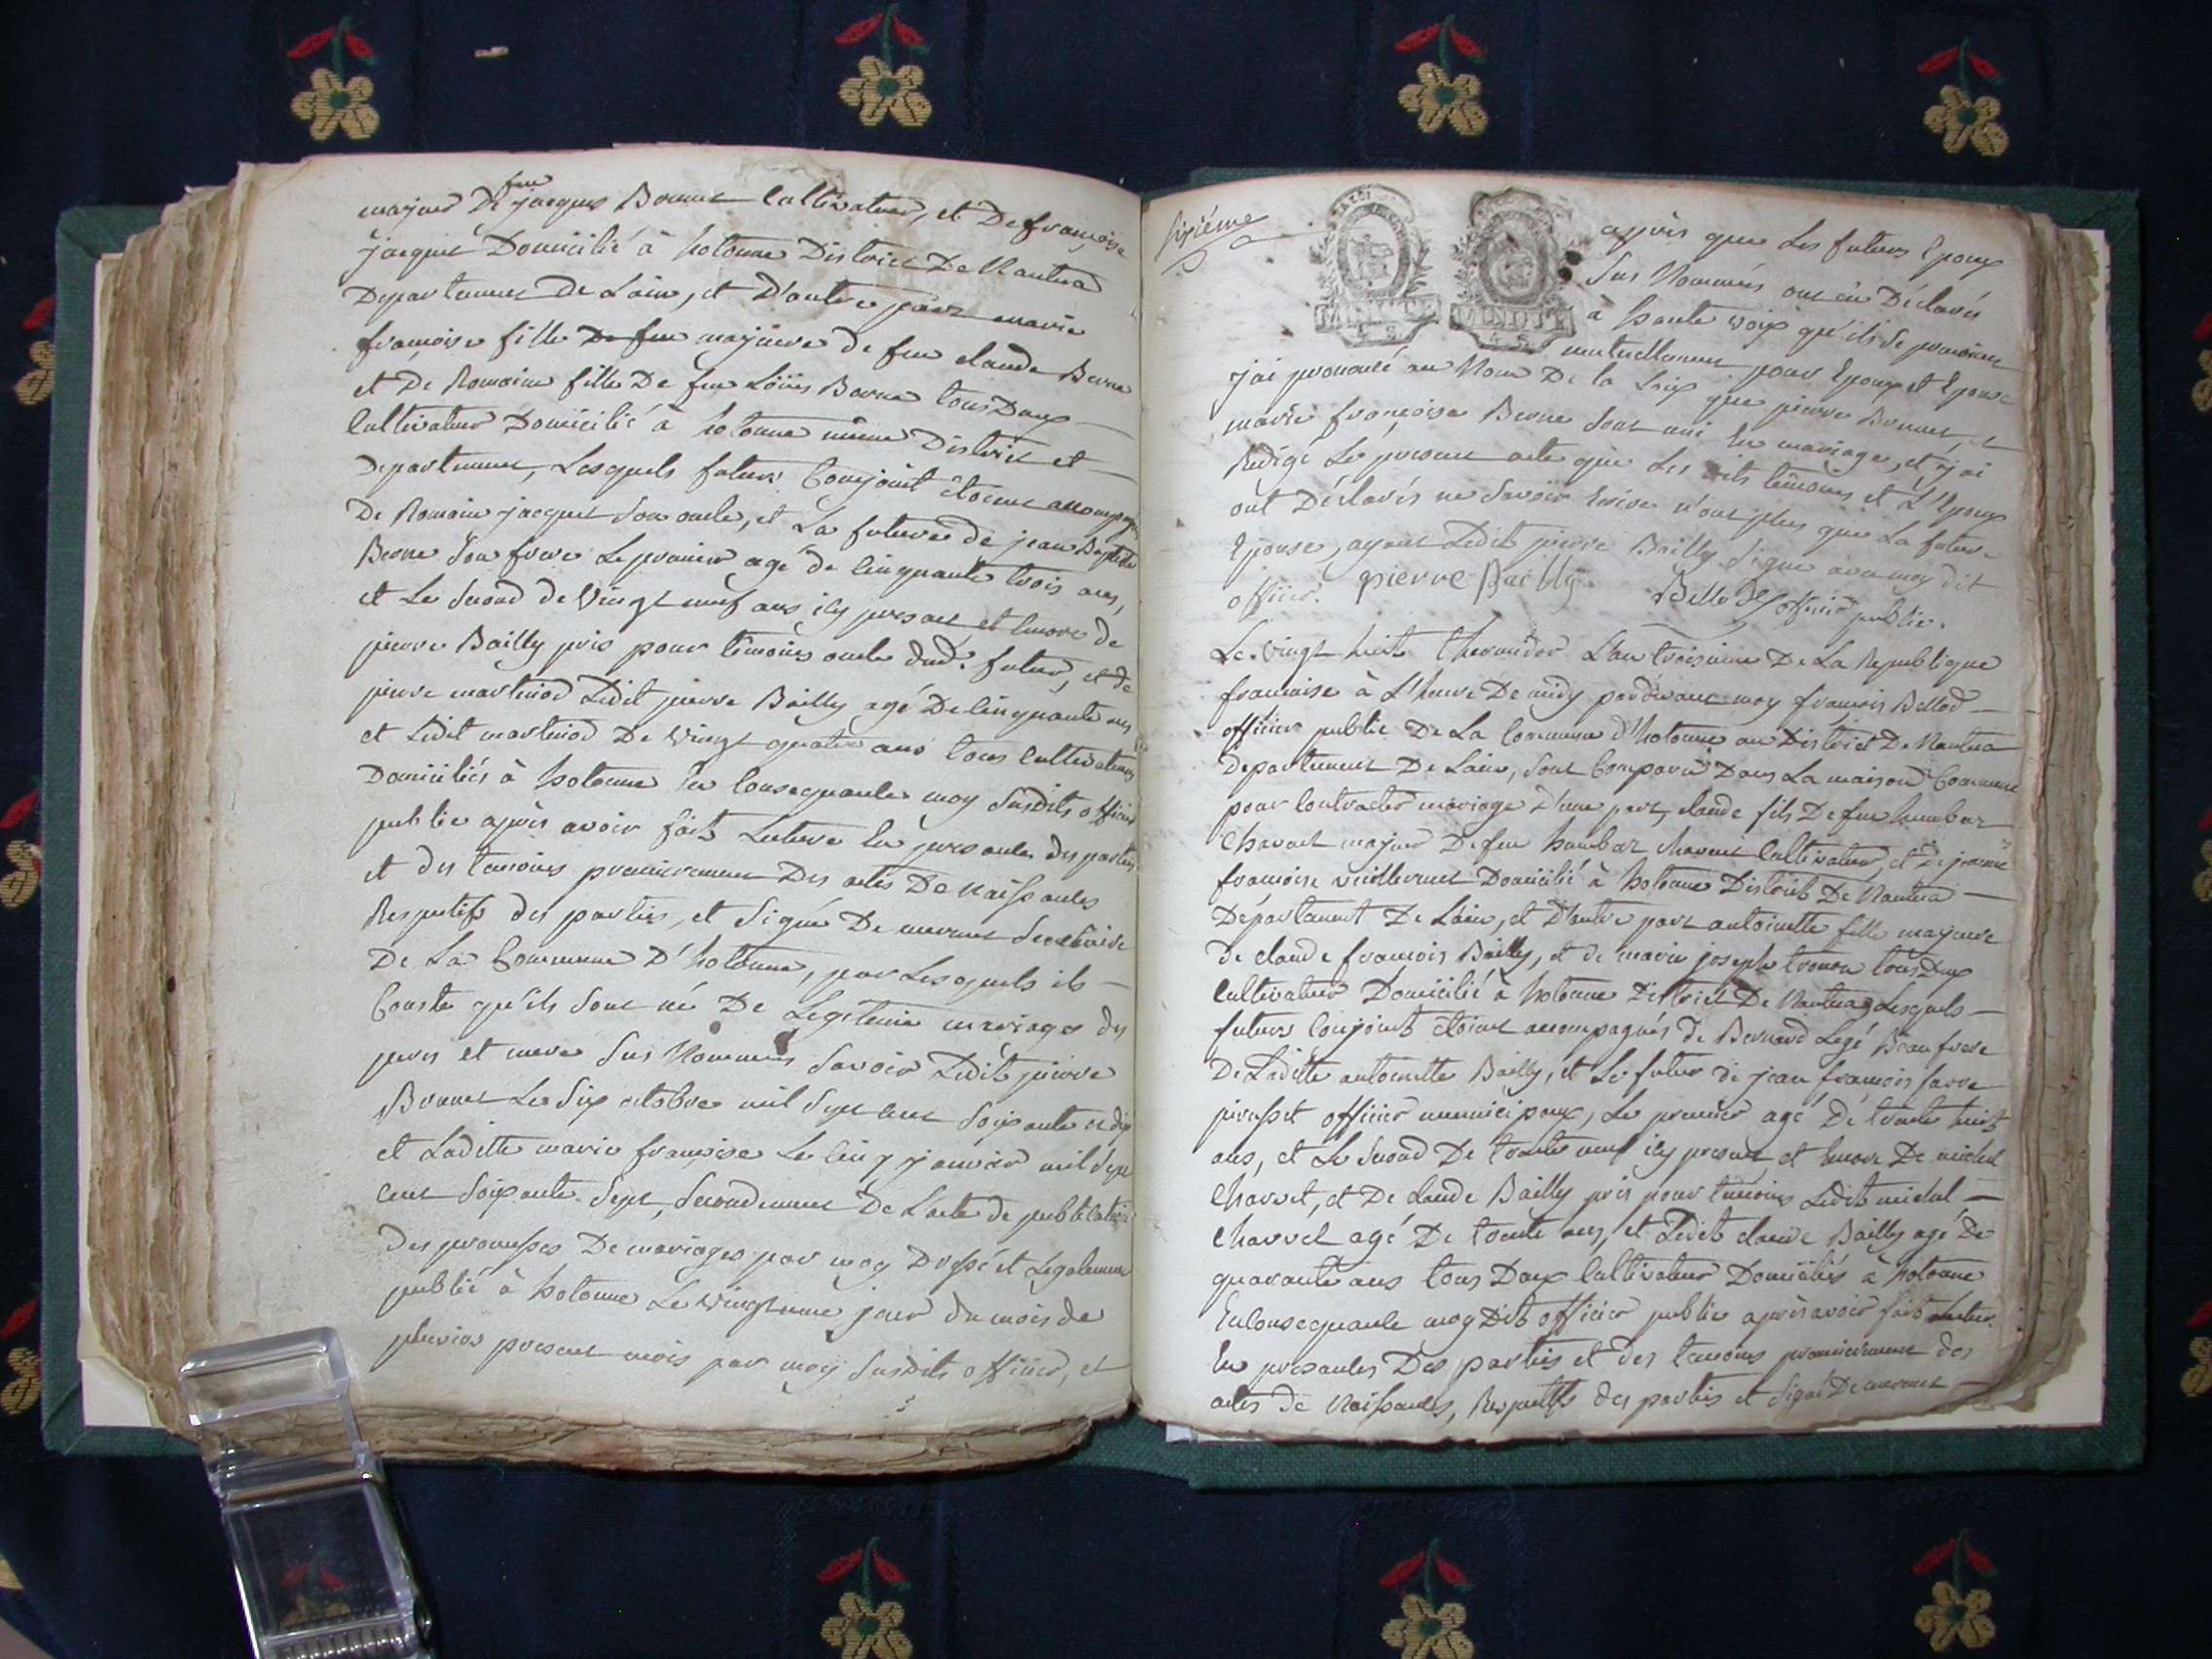 feu
majeur De jacques Bonnet Cultivateur, et De françoise
jacquet Domicilié à hotonne District De Nantua
Departement de Lain, et D'autre part marie
françoise fille De feu majeure de feu claude Berne
et De Romaine fille De feu Loüis Borne tous Deux
Cultivateur Domicilié à hotonne même District et
Departement, Lesquels futurs Conjoint étoient accompagné
De Romain jacquet Son oncle, et La future de jean Baptiste
Berne Son frere Le premier agé de Cinquante trois ans,
et Le Second de Vingt neuf ans icy presant et Encore de
pierre Bailly pris pour témoins oncle dud. futur, et de
pierre martinod Ledit pierre Bailly agé De Cinquante ans
et Ledit martinod De Vingt quatre ans tous Cultivateurs
Domiciliés à hotonne En Consequance moy Susdits officier
public après avoir fait Lecture En presance des parties
et des temoins premierement Des actes De Naissances
Respectifs des parties, et Signé De Secretaire
De La Commune D'hotonne, par Lesquels ils
Conste qu'ils Sont né De Legitime mariages des
peres et mere Sus Nommés Savoir Ledit pierre
Bonnet Le Six octobre mil Sept cent Soixante et dix
et Laditte marie françoise Le Cinq janvier mil Sept
cent Soixante Sept, Secondement De Lacte de publication
des promesses De mariages par moy Dressé et Legalement
publié à hotonne Le Vingt une jour du mois de
pluvios present mois par moy Susdits officier, et
Sixiéme
MINUTE
MINUTE
après que Les futurs Epoux
Sus Nommés ont eû Déclarés
à haute voix qu'ils Se prenoient
mutuellement pour Epoux et Epouse
j'ai prononcé au Nom De la Loix que pierre Bonnet, et
marie françoise Berne Sont uni En mariage, et j'ai
Redigé Le present acte que Les dits témoins et L'Epoux
ont Déclarés ne Savoir Ecrire n'ont plus que La future
Epouse, ayant Ledit pierre Bailly Signé avec moy dit
officier. pierre Bailly Bellod officier public.
Le Vingt huit thermidor L'an troisieme De La Republique
francaise à L'heure De midy pardevant moy françois Bellod
officier public De La Commune d'hotonne au District De Nantua
departement De Lain, Sont Comparu Dans La maison Commune
pour Contracter mariage D'une part, claude fils De feu humbar
Charvet majeur De feu humbar charvet Cultivateur, et De jeanne
francoise Domicilié à hotonne District De Nantua
Département De Lain, et D'autre part antoinette fille majeure
De claude françois Bailly, et de marie joseph tronon tous Deux
Cultivateur Domicilié à hotonne District De Nantua Lesquels
futurs Conjoint étoient accompagnés de Bernard Legé Beau frere
De Laditte antoinette Bailly, et Le futur de jean françois
officier municipaux, Le premier agé De trente huit
ans, et Le Second De trente neuf icy present et Encore De michel
Charvet, et De claude Bailly pris pour temoins Ledit michel
Charvet agé De trente ans, et Ledit claude Bailly agé De
quarante ans tous Deux Cultivateur Domiciliés à hotonne
En Consequance moy Dit officier public après avoir fait Lecture
En presances Des parties et des temoins premierement des
actes de Naissances, Respectifs des parties et Signé De